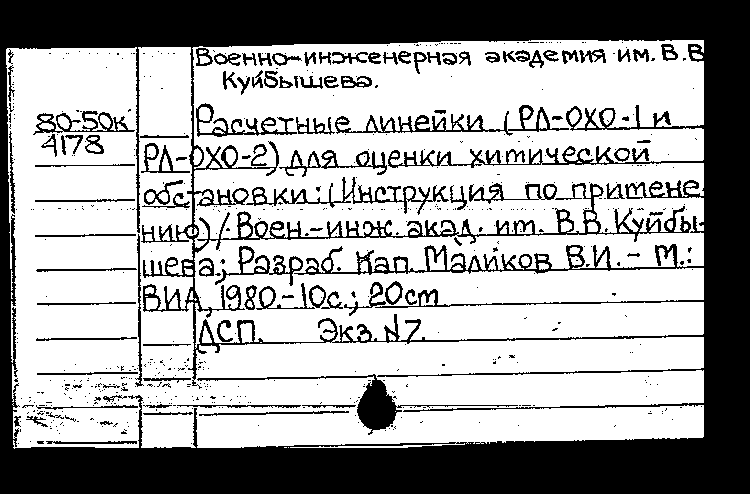 Военно-инженерная академия им. В.В
Куйбышева.
80-50к
4178
Расчетные линейки (РЛ-ОХО-1 и
РЛ-ОХО-2) для оценки химической
обстановки: (Инструкция по примене-
нию) / Воен.-инж. акад. им. В.В. Куйбы-
шева; Разраб. Кап. Маликов В.И. - М.:
ВИА, 1980.-10с.; 20см
ДСП. Экз. №7.